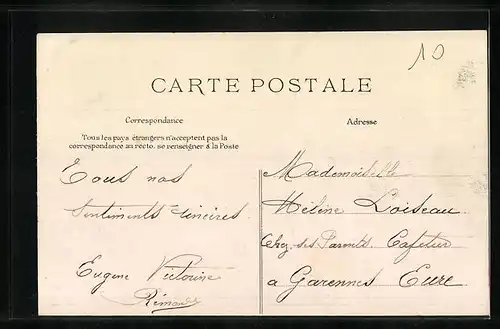 10
CARTE POSTALE
Correspondance
Adresse
Tous les pays étrangers n'acceptent pas la
correspondance au recto. se renseigner à la Poste
Tous nos
Sentiments Sincères.
Eugène Victorine
Mademoiselle
Hélène Loiseau
Chez ses Parents. Cafetier
a Garennes Eure.